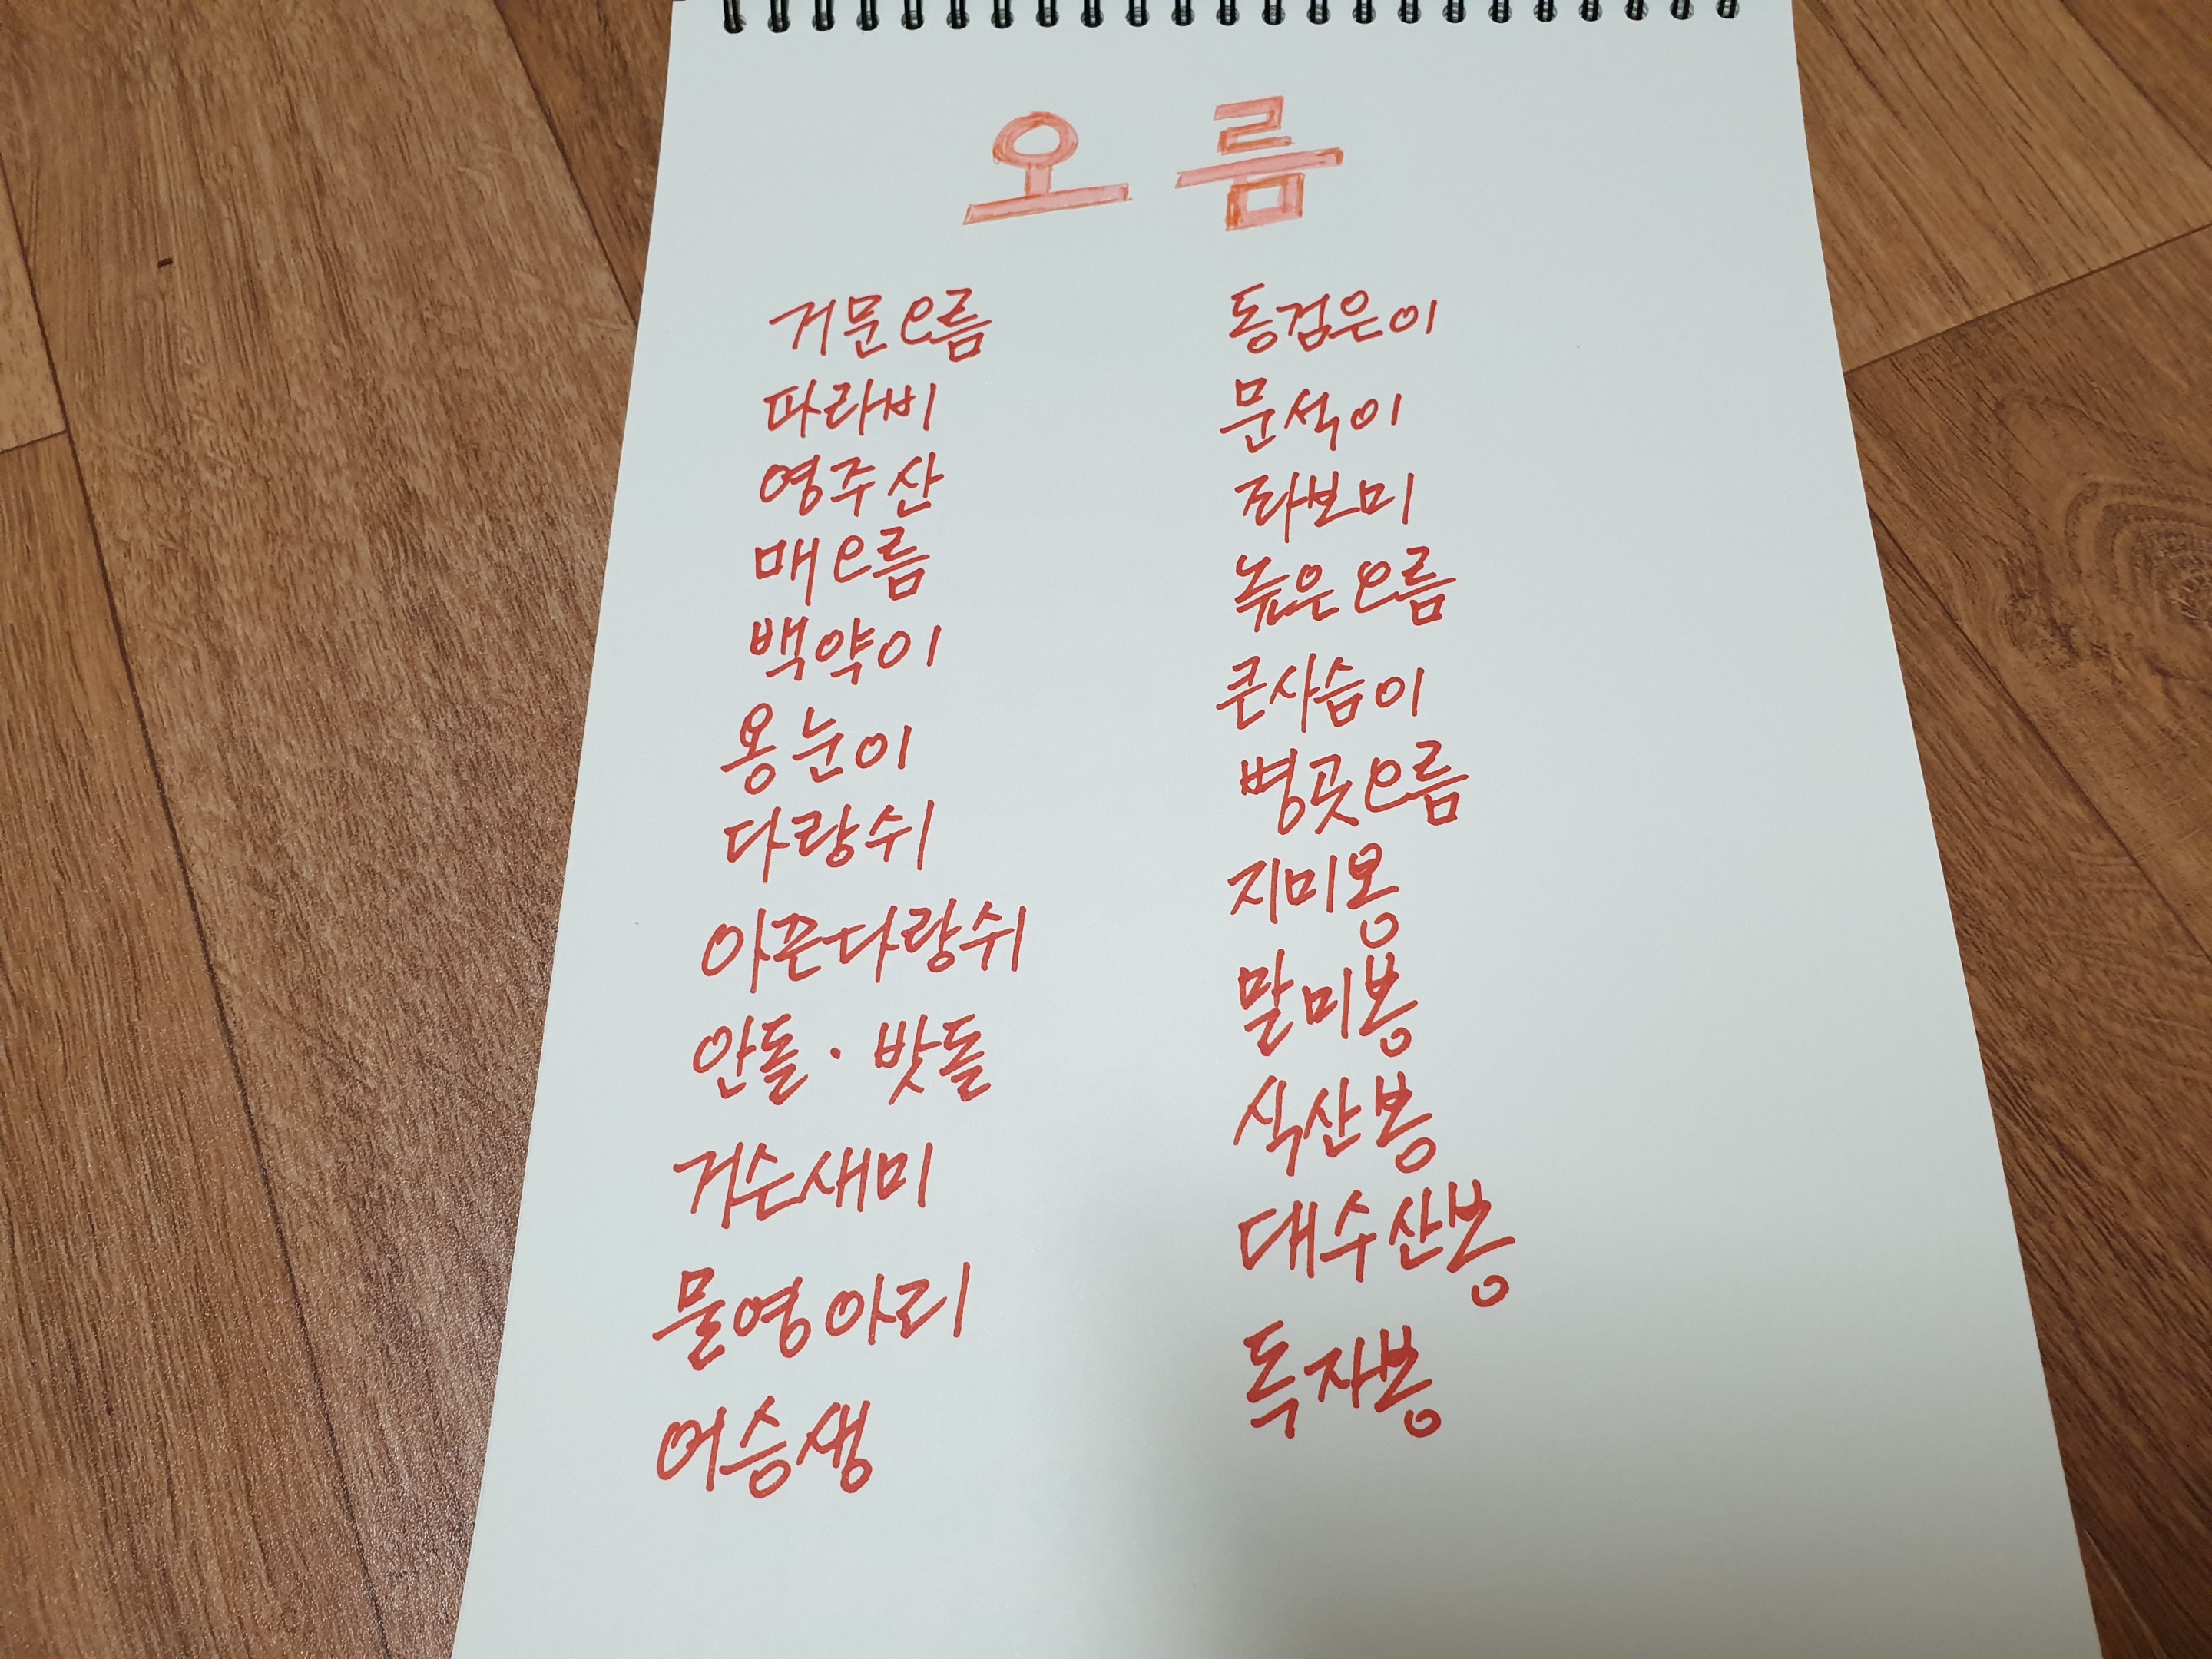 오름
거문오름
파라비
영주산
매오름
백약이
용눈이
다랑쉬
아끈다랑쉬
안돌·밧돌
거슨새미
물영아리
어승생
동검은이
문석이
좌보미
높은오름
큰사슴이
병곳오름
지미봉
말미봉
식산봉
대수산봉
독자봉